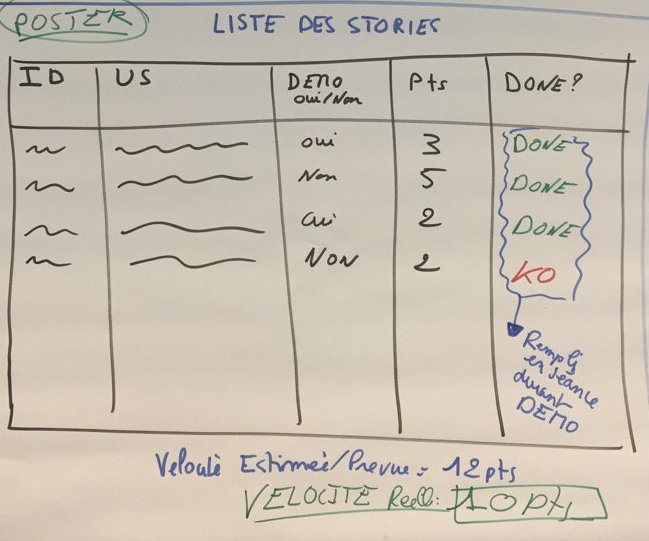 POSTER
LISTE DES STORIES
ID US DEMO Pts DONE?
oui/Non
oui 3 DONE
Non 5 DONE
oui 2 DONE
NON 2 KO
Rempli
en séance
durant
DEMO
Velocité Estimée/Prevue = 12 pts
VELOCITE Reelle: 10 pts